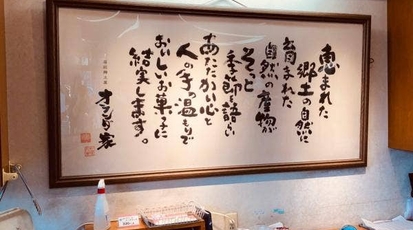 恵まれた
郷土の自然に
育まれた
自然の産物が
そっと
季節を語らい
あたたかい心と
人の手の温もりで
おいしいお菓子に
結実します。
オランダ家